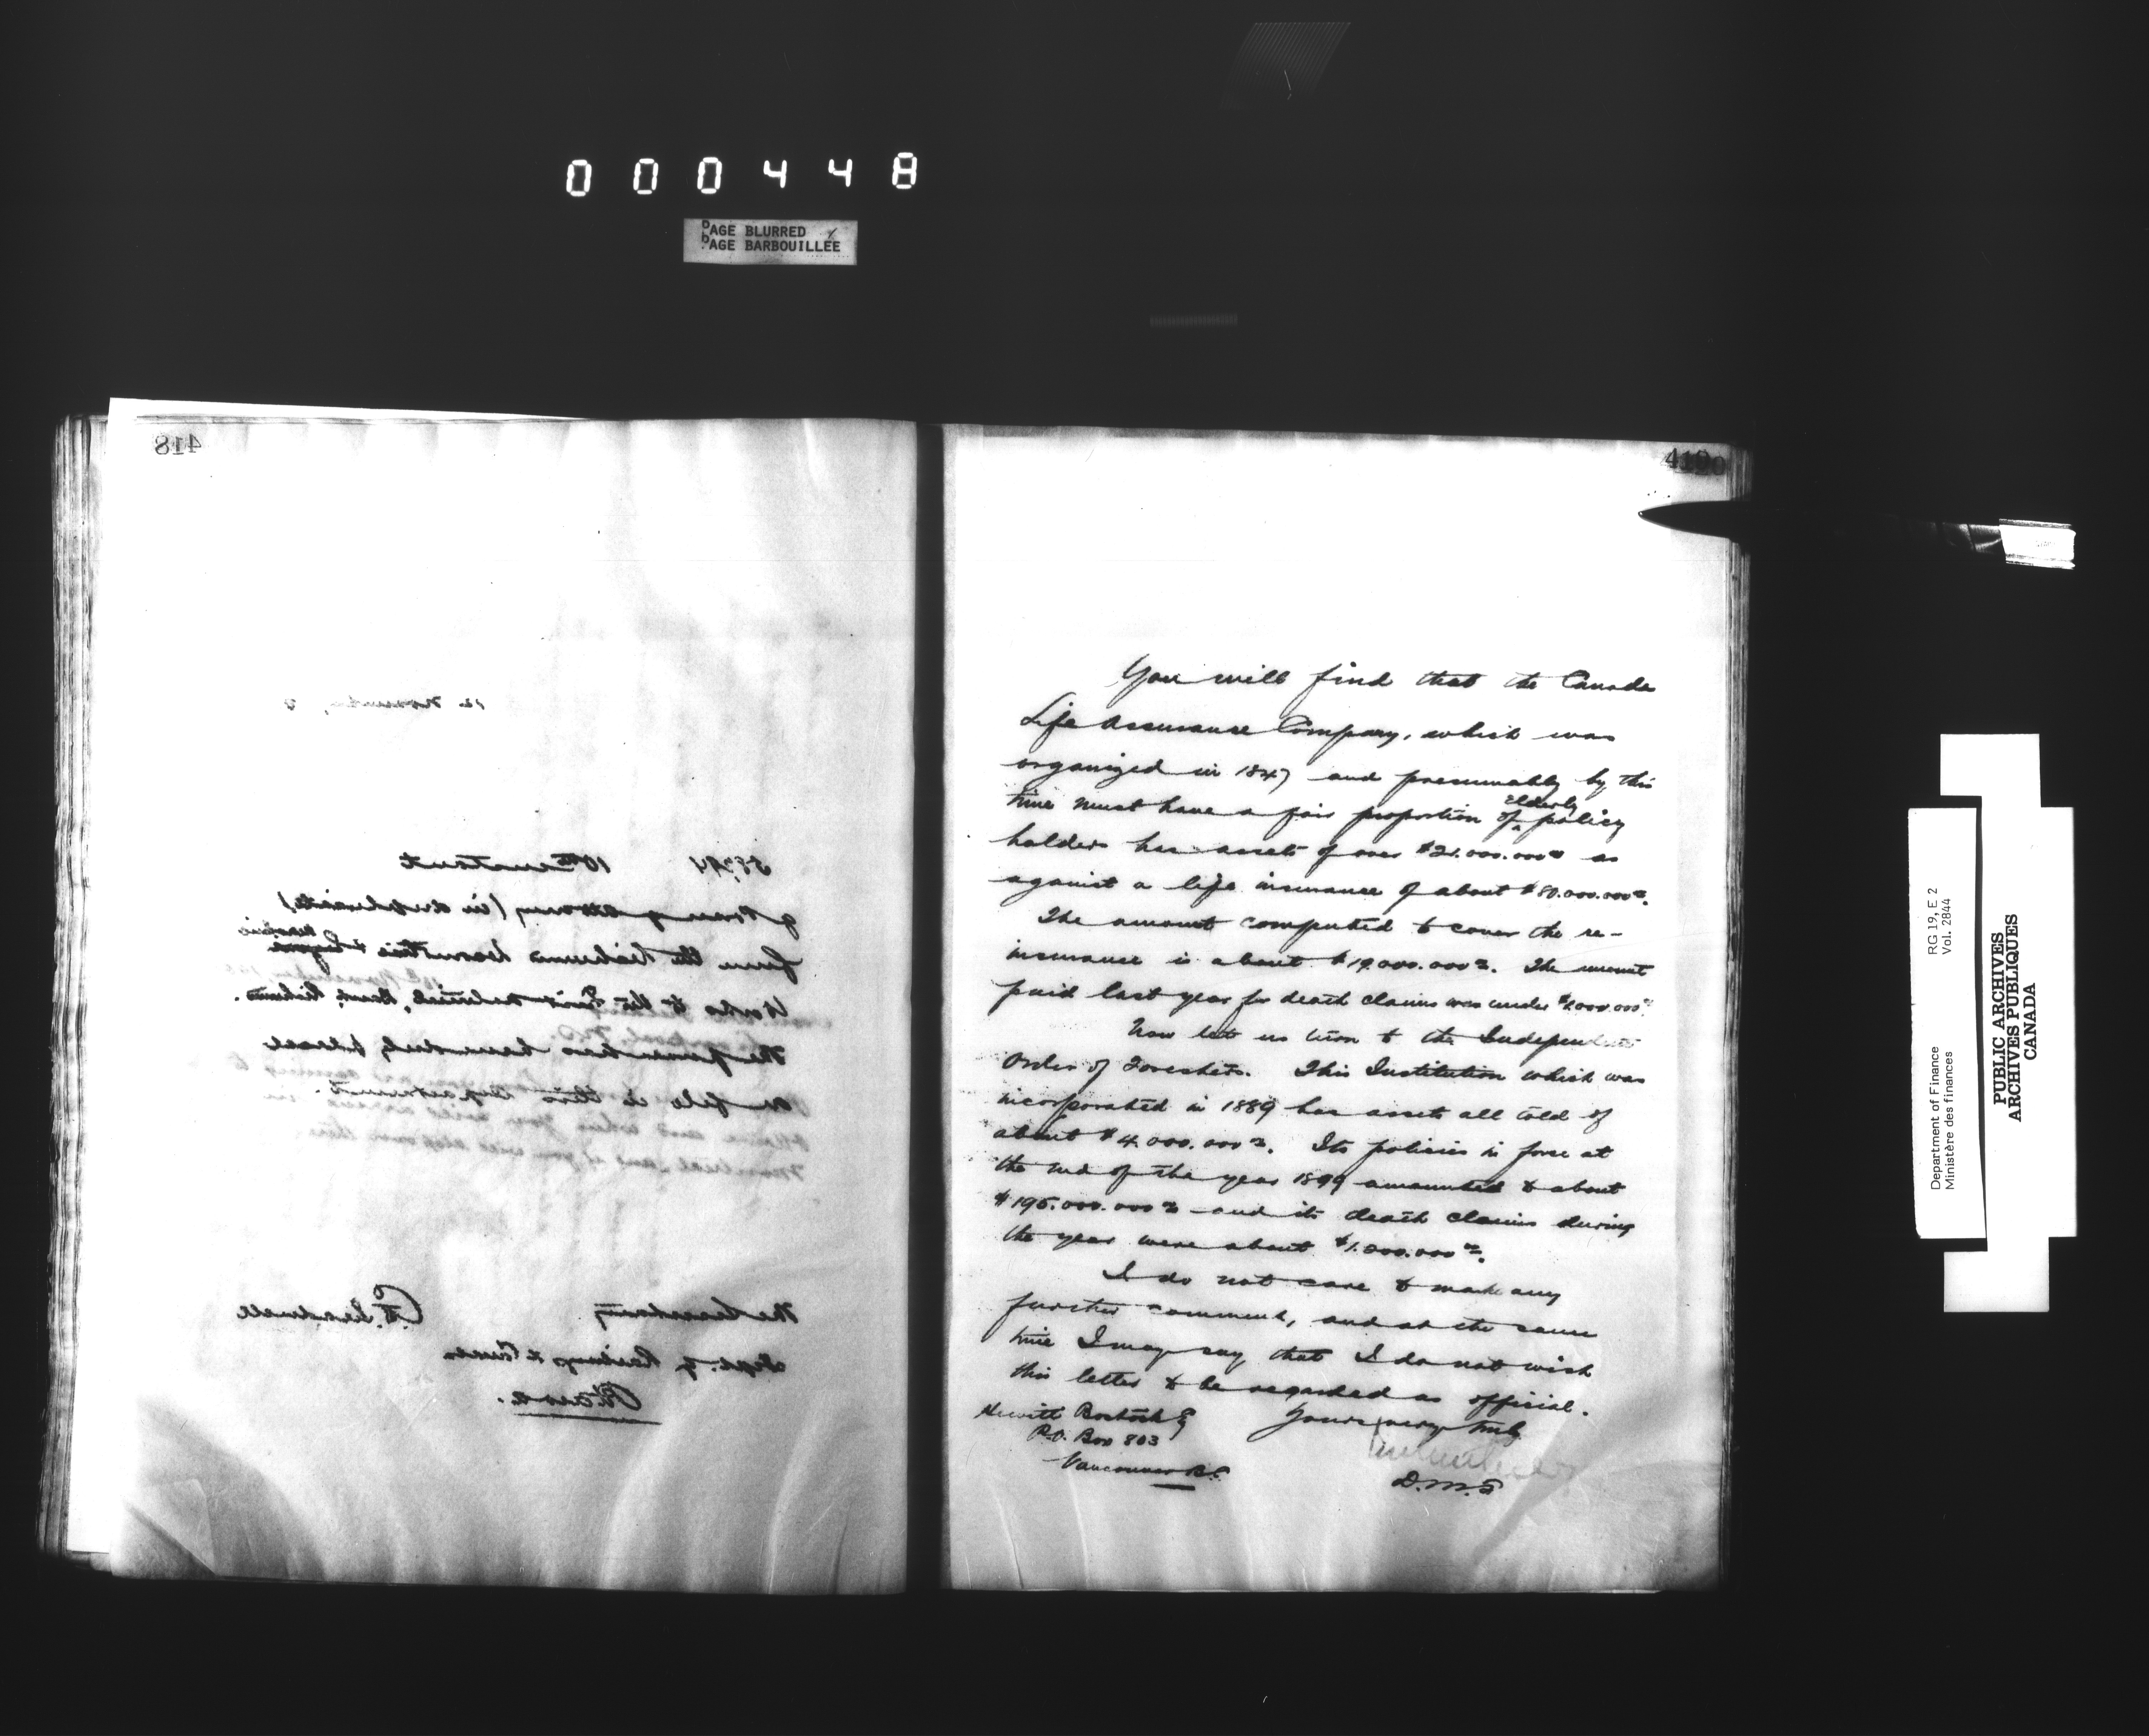 000448
PAGE BLURRED
PAGE BARBOUILLÉE
418
12 November,
10th instant
Power of attorney (in duplicate)
from the
Works to
The power has been duly placed
on file in this Department.
The Secretary
Dept. of Railways & Canals
Ottawa.
You will find that the Canada
Life Assurance Company, which was
organized in 1847 and presumably by this
time must have a fair proportion of elderly policy
holders has assets of over $21.000.000 as
against a life insurance of about $80.000.000.
The amount computed to cover the re-
insurance is about $19.000.000. The amount
paid last year for death claims was under
Now let us turn to the Independent
Order of Foresters. This Institution which was
incorporated in 1889 has assets all told of
about $4.000.000. Its policies in force at
the end of the year 1899 amounted to about
and its death claims during
the year were about
I do not care to make any
further comment, and at the same
time I may say that I do not wish
this letter to be regarded as official.
Yours very truly
D.M.F
Hewitt Bostock Esq
P.O. Box 803
Vancouver B.C.
Department of Finance RG 19, E 2
Ministère des finances Vol. 2844
PUBLIC ARCHIVES
ARCHIVES PUBLIQUES
CANADA